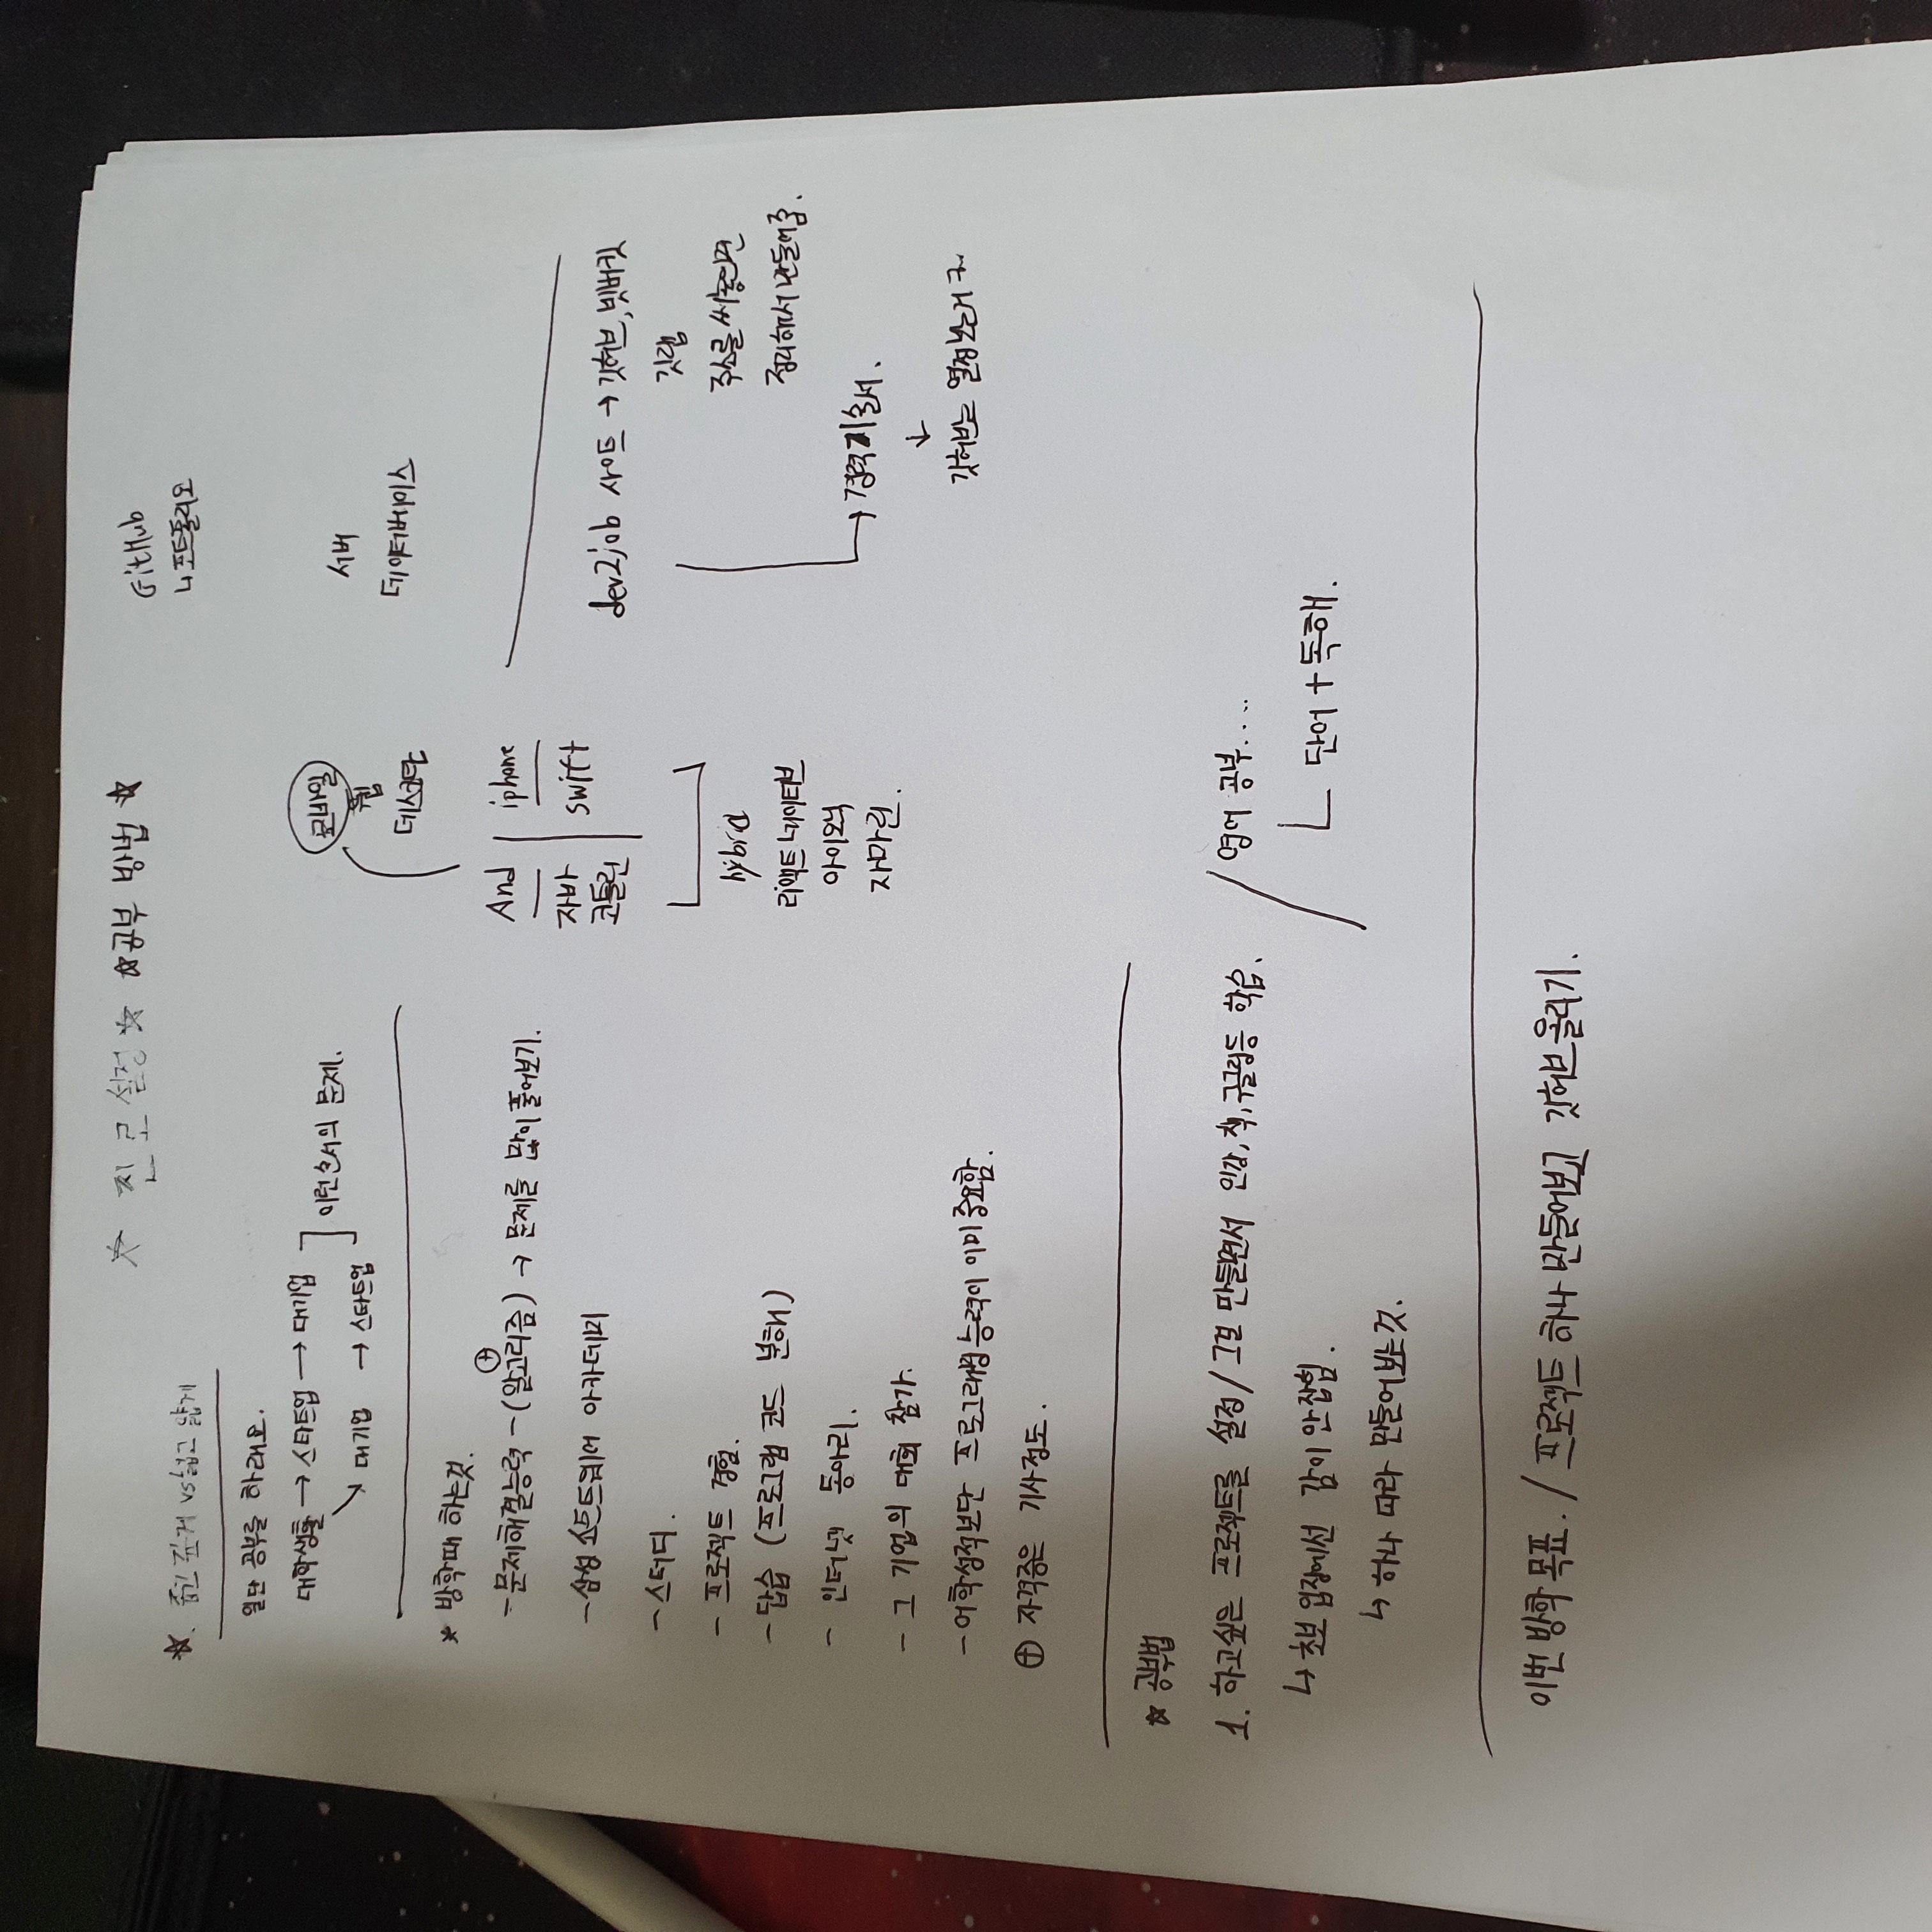 ☆ 진로설정 ☆ ☆공부 방법☆
GitHub
↳포트폴리오
☆. 좁고 깊게 vs 넓고 얇게
일단 공부를 하래요.
대학생활 → 스타트업 → 대기업
↘ 대기업 → 스타트업
이런순서의 문제.
* 방학때 하는것.
- 문제해결능력 - (알고리즘) → 문제를 많이 풀어보기.
⊕
- 삼성 소프트웨어 아카데미
- 스터디.
- 프로젝트 경험.
- 답습 (프로그램 코드 분해)
- 인터넷 동아리.
- 그 기업의 대회 참가.
- 어학성적보단 프로그래밍능력이 이미 중요함.
⊕ 자격증은 기사정도.
모바일
웹
데스크탑
And | iphone
자바 | swift
코틀린
hybrid
리액트 네이티브
아이오닉
자마린.
서버
데이터베이스
dev2job 사이트 → 깃허브, 빗버킷
깃랩
주소를 써놓으면
정리해서 만들어줌.
→ 경력기술서.
↓
깃허브는 열정보는거
☆ 공부법
1. 하고싶은 프로젝트를 설정 / 그걸 만들면서 인강, 책, 구글링등 학습.
↳ 초보 입장에선 감이 안잡힘.
↳ 하나 따라 만들어보는것.
/ 영어 공부....
단어 + 독해.
이번 방학 목표. / 프로젝트 하나 만들어보고 깃허브올리기.